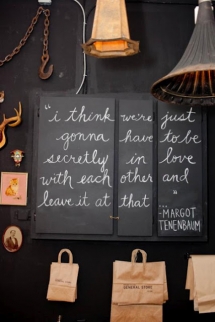 "i think we're just
gonna have to be
secretly in love
with each other and
leave it at that "
...MARGOT
TENENBAUM
GENERAL STORE